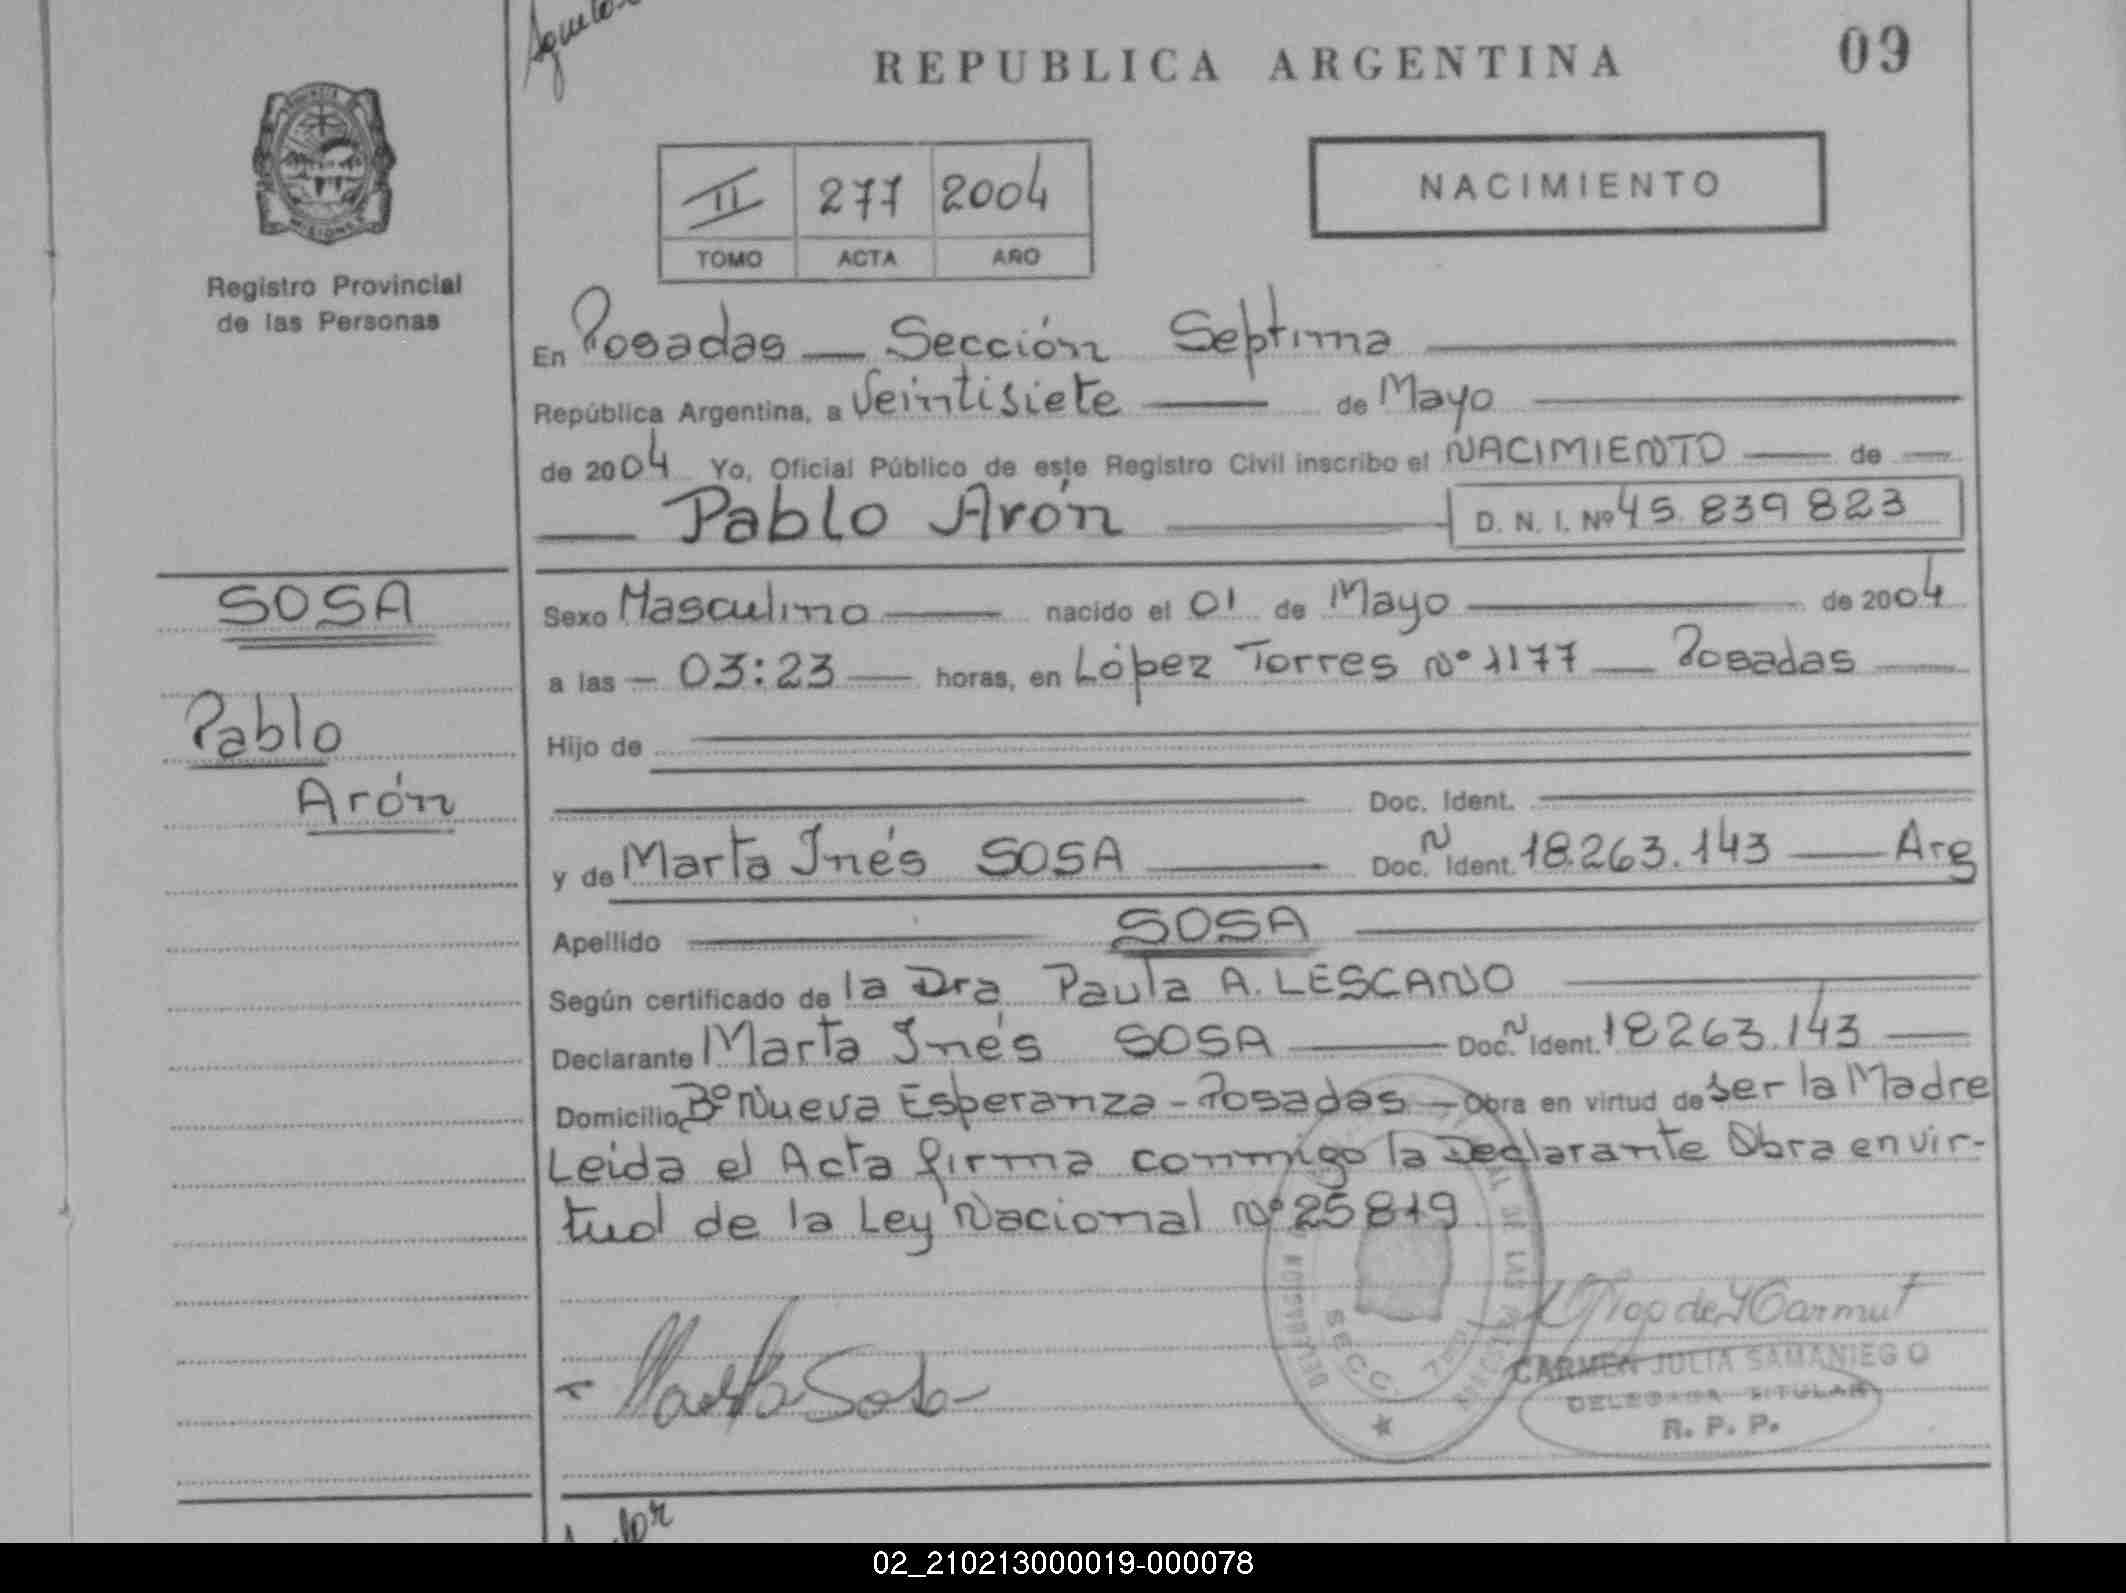 REPUBLICA ARGENTINA
09
II 277 2004
TOMO ACTA AÑO
NACIMIENTO
Registro Provincial
de las Personas
En Posadas — Sección Septima
República Argentina, a Veintisiete — de Mayo
de 2004 Yo, Oficial Público de este Registro Civil inscribo el NACIMIENTO — de
Pablo Arón
D. N. I. Nº 45 839 823
SOSA
Pablo
Arón
Sexo Masculino — nacido el 01 de Mayo — de 2004
a las — 03:23 — horas, en López Torres Nº 1177 — Posadas
Hijo de
Doc. Ident.
y de Marta Inés SOSA — Doc. N Ident. 18.263.143 — Arg
Apellido SOSA
Según certificado de la Dra Paula A. LESCANO
Declarante Marta Inés SOSA — Doc. N Ident. 18263.143
Domicilio Bº Nueva Esperanza - Posadas — Obra en virtud de ser la Madre
Leida el Acta firma conmigo la Declarante Obra en vir-
tud de la Ley Nacional Nº 25819
Marta Sosa
SECC. 7
CARMEN JULIA SAMANIEGO
DELEGADA TITULAR
R. P. P.
02_210213000019-000078